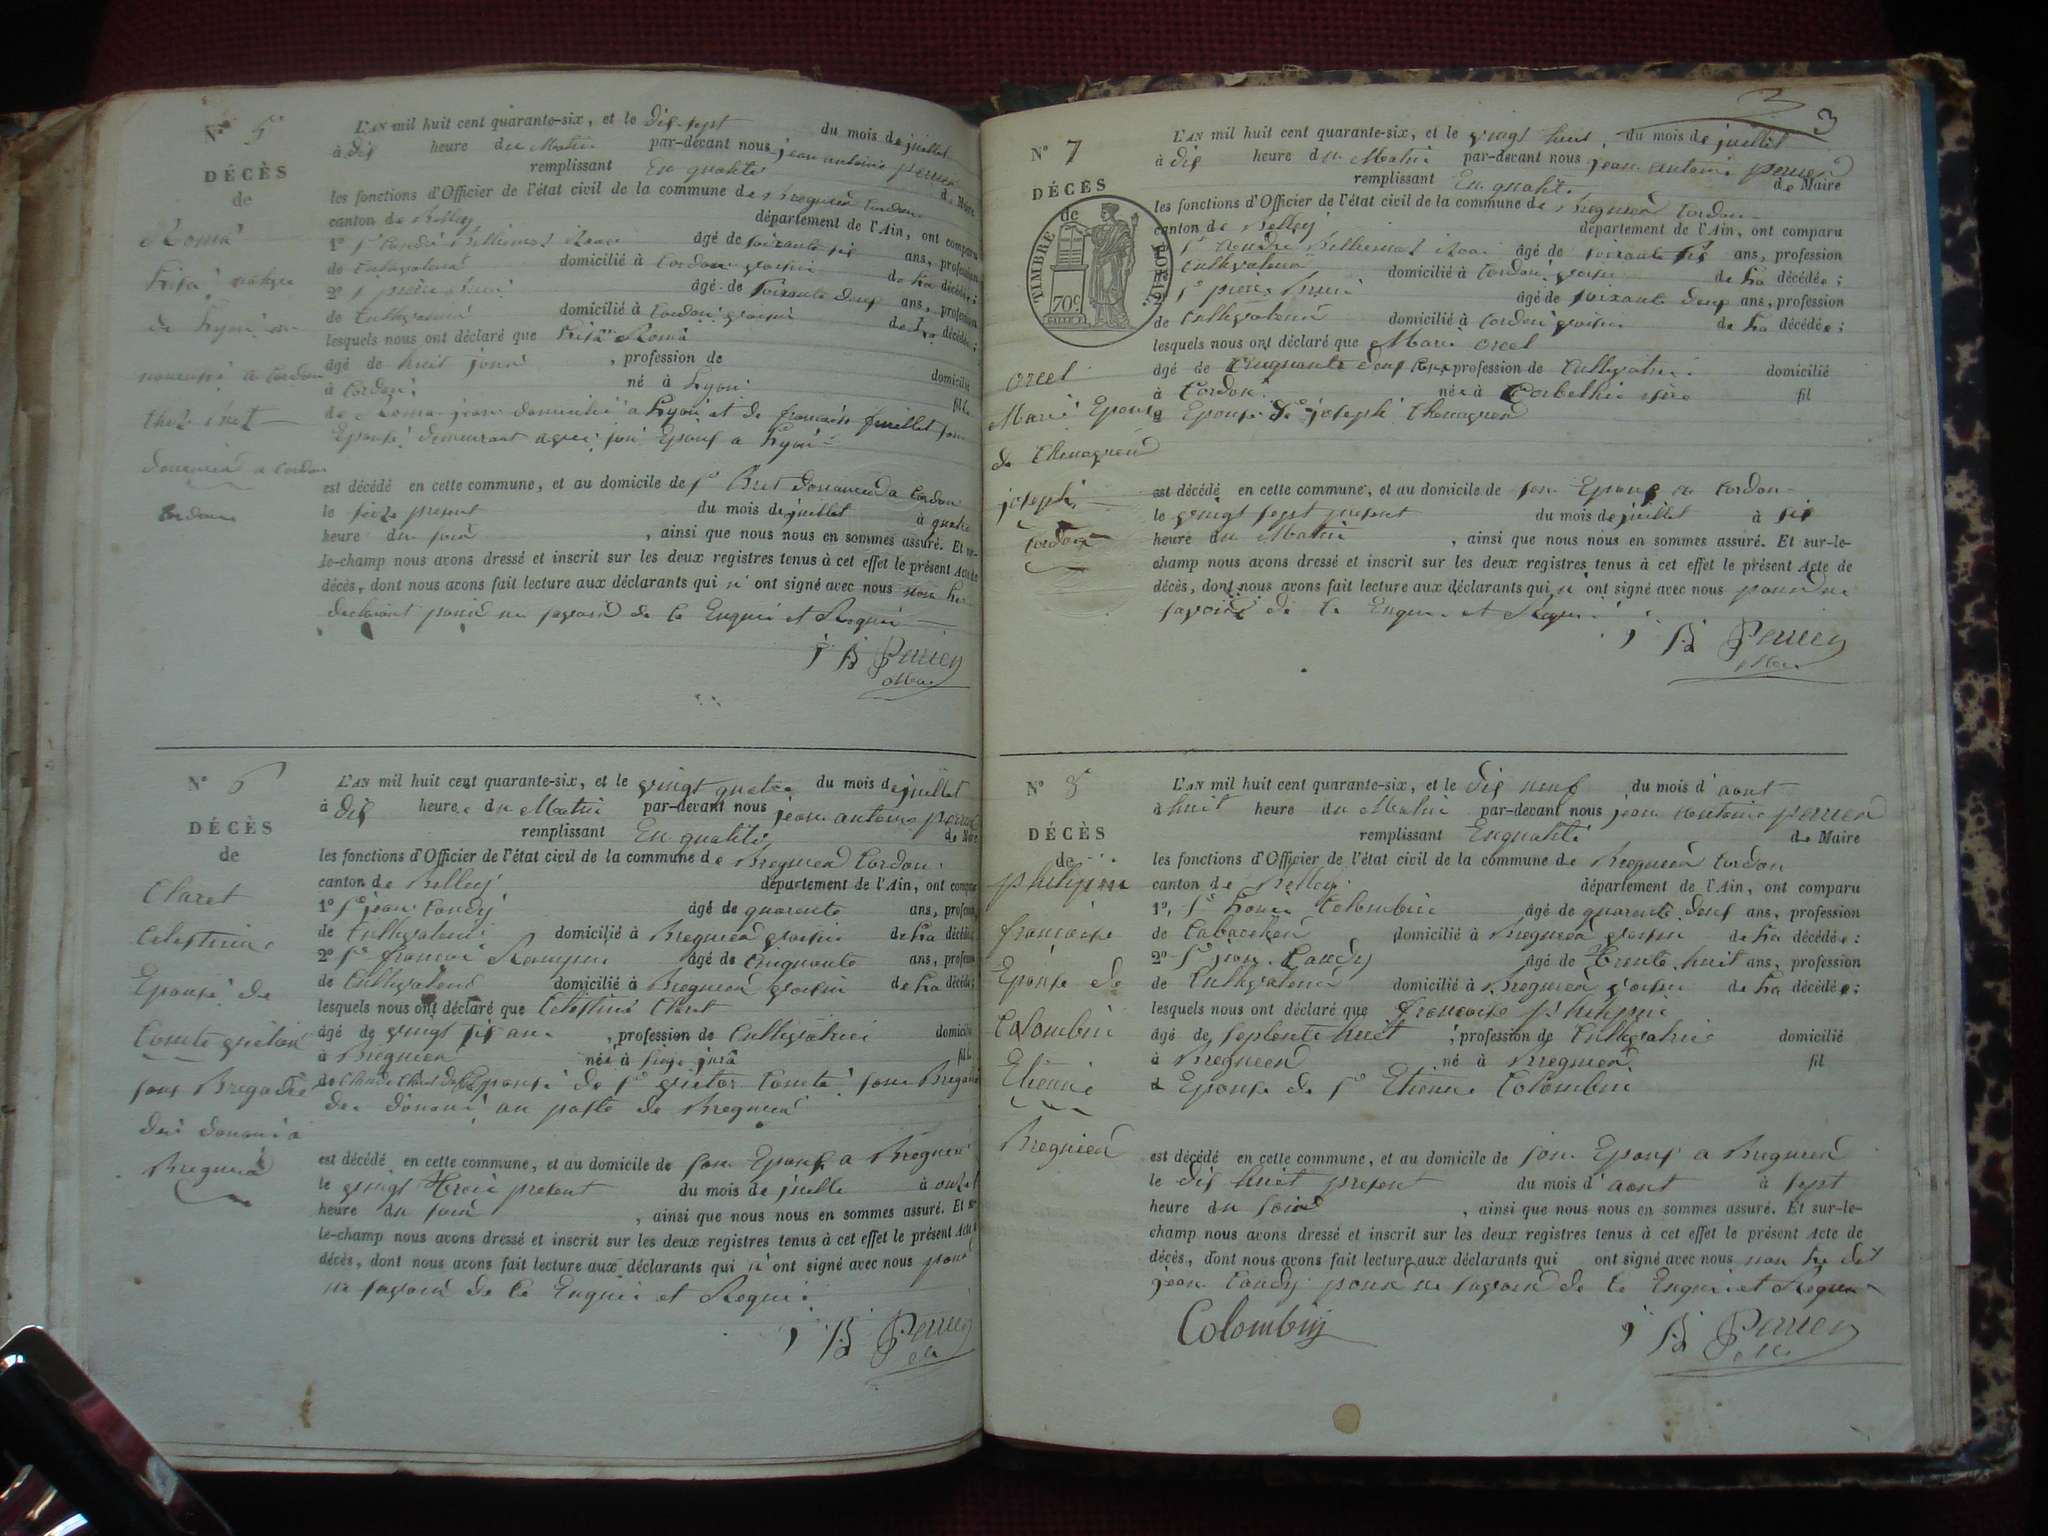 N° 5
DÉCÈS
de
Roma
de Lyon
a Cordon
Cordon
L'AN mil huit cent quarante-six, et le dix sept du mois de juillet
à dix heure du Matin par-devant nous jean antoine perrier
remplissant En qualité de Maire
les fonctions d'Officier de l'état civil de la commune de Bregnier Cordon
canton de Belley département de l'Ain, ont comparu
1° âgé de soixante six ans, profession
de Cultivateur domicilié à Cordon voisin de La décédée;
2° âgé de soixante deux ans, profession
de Cultivateur domicilié à Cordon voisin de La décédée;
lesquels nous ont déclaré que Roma
âgé de huit jours , profession de
à Cordon né à Lyon domicilié
de Roma jean domicilié a Lyon et de francoise fuillet son fil
Epouse demeurant avec son Epoux a Lyon
est décédé en cette commune, et au domicile de Sr Bret Douanier a Cordon
le seize present du mois de juillet à quatre
heure du soir , ainsi que nous nous en sommes assuré. Et sur-
le-champ nous avons dressé et inscrit sur les deux registres tenus à cet effet le présent Acte de
décès, dont nous avons fait lecture aux déclarants qui n'ont signé avec nous non Les
declarant pour ne savoir de Ce Enquis et Requis
j A Perrier
Maire
N° 6
DÉCÈS
de
Claret
Celestine
Epouse de
Comte
sous Brigadier
des douane a
Bregnier
L'AN mil huit cent quarante-six, et le vingt quatre du mois de juillet
à dix heure du Matin par-devant nous jean antoine perrier
remplissant En qualité de Maire
les fonctions d'Officier de l'état civil de la commune de Bregnier Cordon
canton de Belley département de l'Ain, ont comparu
1° Sr jean Candy âgé de quarante ans, profession
de Cultivateur domicilié à Bregnier voisin de La décédée
2° Sr francois âgé de Cinquante ans, profession
de Cultivateur domicilié à Bregnier voisin de La décédée;
lesquels nous ont déclaré que Celestine Claret
âgé de vingt six ans , profession de Cultivatrice domicilié
à Bregnier née à jura fil
de Claude Claret Epouse de Sr victor Comte sous Brigadier
des douane au poste de Bregnier
est décédé en cette commune, et au domicile de son Epoux a Bregnier
le vingt trois present du mois de juillet à onze
heure du soir , ainsi que nous nous en sommes assuré. Et sur-
le-champ nous avons dressé et inscrit sur les deux registres tenus à cet effet le présent Acte de
décès, dont nous avons fait lecture aux déclarants qui n'ont signé avec nous pour
ne savoir de Ce Enquis et Requis
j A Perrier
3
3
N° 7
DÉCÈS
de
TIMBRE ROYAL.
70c
orcel
Marie Epouse
de Thevagnon
joseph
Cordon
L'AN mil huit cent quarante-six, et le vingt huit du mois de juillet
à dix heure du Matin par-devant nous jean antoine perrier
remplissant En qualité de Maire
les fonctions d'Officier de l'état civil de la commune de Bregnier Cordon
canton de Belley département de l'Ain, ont comparu
âgé de soixante six ans, profession
Cultivateur domicilié à Cordon voisin de La décédée;
âgé de soixante deux ans, profession
de Cultivateur domicilié à Cordon voisin de La décédée;
lesquels nous ont déclaré que Marie orcel
âgé de Cinquante deux ans profession de Cultivatrice domicilié
à Cordon née à Corbelin isère fil
Epouse de Sr joseph Thevagnon
est décédé en cette commune, et au domicile de son Epoux a Cordon
le vingt sept present du mois de juillet à six
heure du Matin , ainsi que nous nous en sommes assuré. Et sur-le-
champ nous avons dressé et inscrit sur les deux registres tenus à cet effet le présent Acte de
décès, dont nous avons fait lecture aux déclarants qui n'ont signé avec nous pour ne
savoir de Ce Enquis et Requis
j A Perrier
Maire
N° 8
DÉCÈS
de
philippe
francoise
Epouse de
Colombin
Etienne
Bregnier
L'AN mil huit cent quarante-six, et le dix neuf du mois d'aout
à huit heure du Matin par-devant nous jean antoine perrier
remplissant En qualité de Maire
les fonctions d'Officier de l'état civil de la commune de Bregnier Cordon
canton de Belley département de l'Ain, ont comparu
1°, Sr Louis Colombin âgé de quarante deux ans, profession
de domicilié à Bregnier voisin de La décédée:
2° Sr jean Candy âgé de trente huit ans, profession
de Cultivateur domicilié à Bregnier voisin de La décédée;
lesquels nous ont déclaré que francoise philippe
âgé de septente huit , profession de Cultivatrice domicilié
à Bregnier né à Bregnier fil
d Epouse de Sr Etienne Colombin
est décédé en cette commune, et au domicile de son Epoux a Bregnier
le dix huit present du mois d'aout à sept
heure du soir , ainsi que nous nous en sommes assuré. Et sur-le-
champ nous avons dressé et inscrit sur les deux registres tenus à cet effet le présent Acte de
décès, dont nous avons fait lecture aux déclarants qui ont signé avec nous non Le dit
jean Candy pour ne savoir de Ce Enquis et Requis
Colombin
j A Perrier